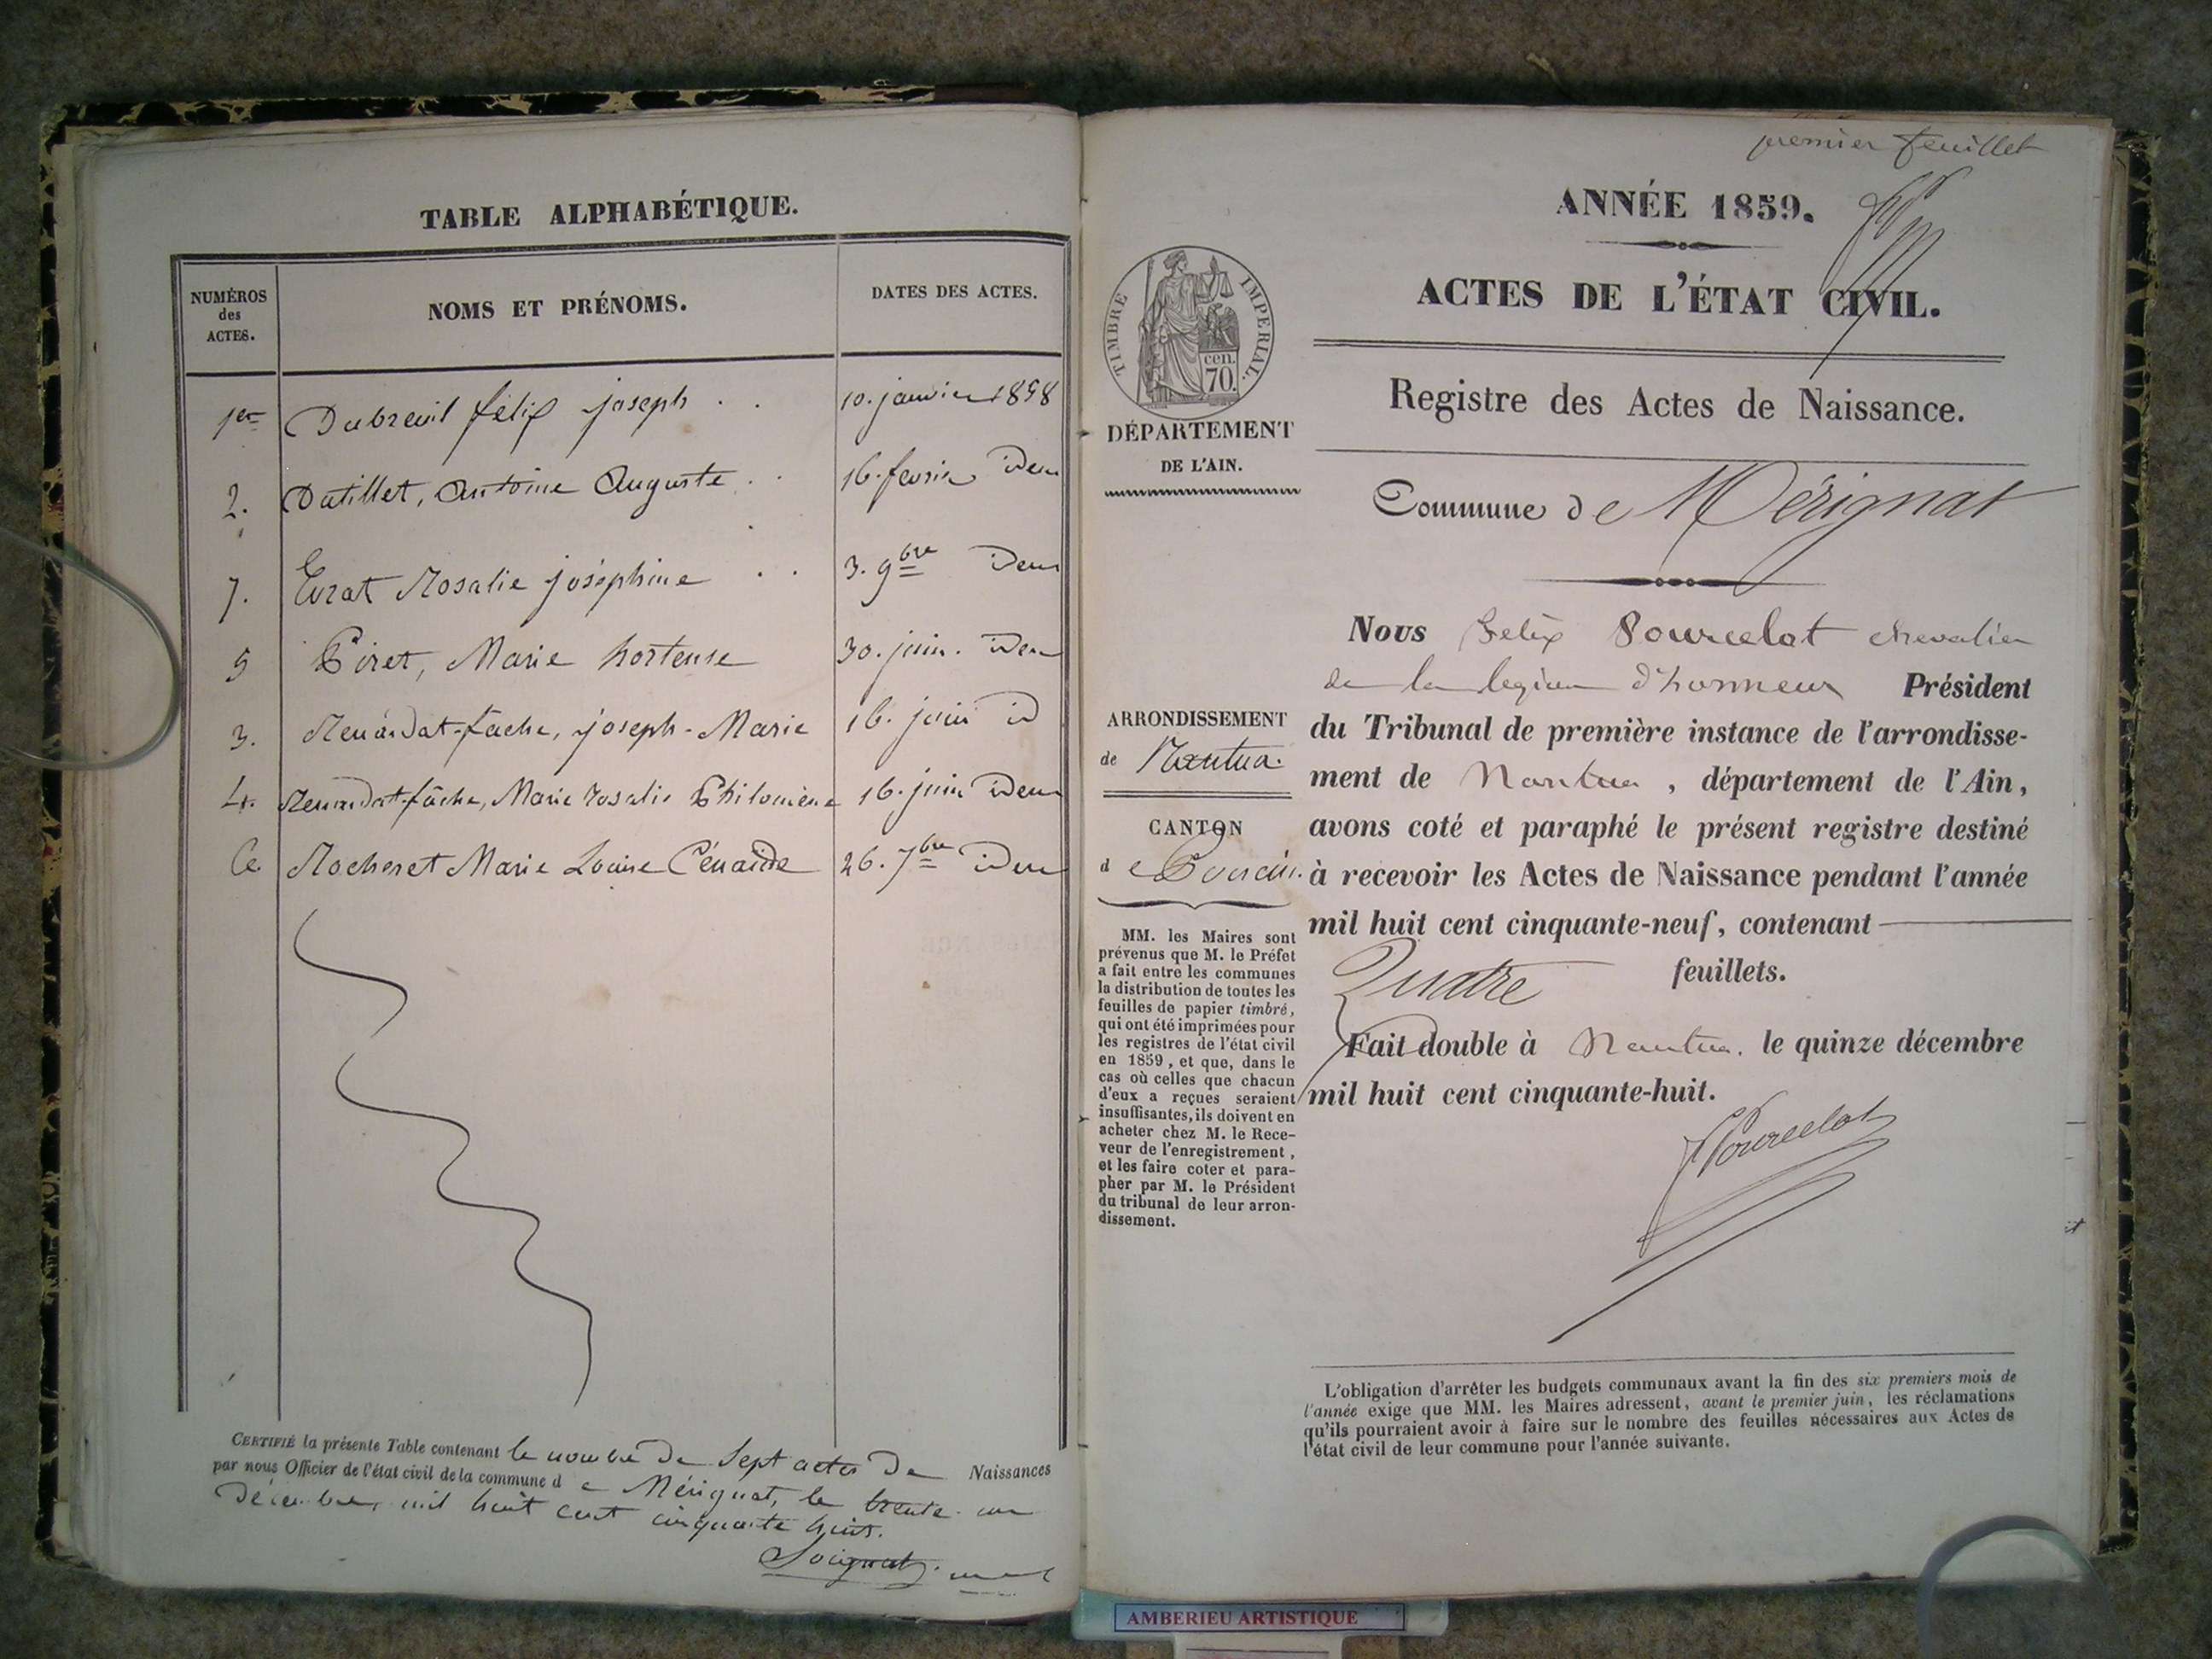 TABLE ALPHABÉTIQUE.
NUMÉROS des ACTES.
NOMS ET PRÉNOMS.
DATES DES ACTES.
1er Dubreuil félix joseph . . 10. janvier 1858
2. Dutillet, Antoine Auguste . . 16. fevrier idem
7. Evrat Rosalie joséphine . . 3. 9bre idem
5 Piret, Marie hortense 30. juin. idem
3. Renandat-fache, joseph-Marie 16. juin id
4. Renandat-fâche, Marie rosalie Philomène 16. juin idem
6 Rocheret Marie Louise Cénaïde 26. 7bre idem
CERTIFIÉ la présente Table contenant le nombre de Sept actes de Naissances
par nous Officier de l'état civil de la commune d e Mérignat, le trente un
décembre, mil huit cent cinquante huit.
premier feuillet
ANNÉE 1859.
ACTES DE L'ÉTAT CIVIL.
TIMBRE IMPERIAL.
cen.
70.
DÉPARTEMENT
DE L'AIN.
Registre des Actes de Naissance.
Commune de Mérignat
ARRONDISSEMENT
de Nantua.
CANTON
d e Poncin.
MM. les Maires sont
prévenus que M. le Préfet
a fait entre les communes
la distribution de toutes les
feuilles de papier timbré,
qui ont été imprimées pour
les registres de l'état civil
en 1859, et que, dans le
cas où celles que chacun
d'eux a reçues seraient
insuffisantes, ils doivent en
acheter chez M. le Rece-
veur de l'enregistrement,
et les faire coter et para-
pher par M. le Président
du tribunal de leur arron-
dissement.
Nous Felix Pourcelot chevalier
de la legion d'honneur Président
du Tribunal de première instance de l'arrondisse-
ment de Nantua, département de l'Ain,
avons coté et paraphé le présent registre destiné
à recevoir les Actes de Naissance pendant l'année
mil huit cent cinquante-neuf, contenant
Quatre feuillets.
Fait double à Nantua. le quinze décembre
mil huit cent cinquante-huit.
F Pourcelot
L'obligation d'arrêter les budgets communaux avant la fin des six premiers mois de
l'année exige que MM. les Maires adressent, avant le premier juin, les réclamations
qu'ils pourraient avoir à faire sur le nombre des feuilles nécessaires aux Actes de
l'état civil de leur commune pour l'année suivante.
AMBERIEU ARTISTIQUE